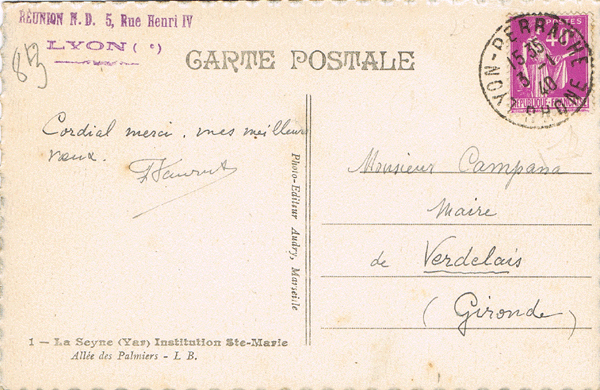 RÉUNION N. D. 5, Rue Henri IV
LYON (
CARTE POSTALE
POSTES
LYON-PERRACHE
15 35
3 - 1
40
RHONE
Cordial merci, mes meilleurs
vœux.
Photo-Editeur Audry, Marseille
Monsieur Campana
Maire
de Verdelais
(Gironde)
1 — La Seyne (Var) Institution Ste-Marie
Allée des Palmiers - I. B.